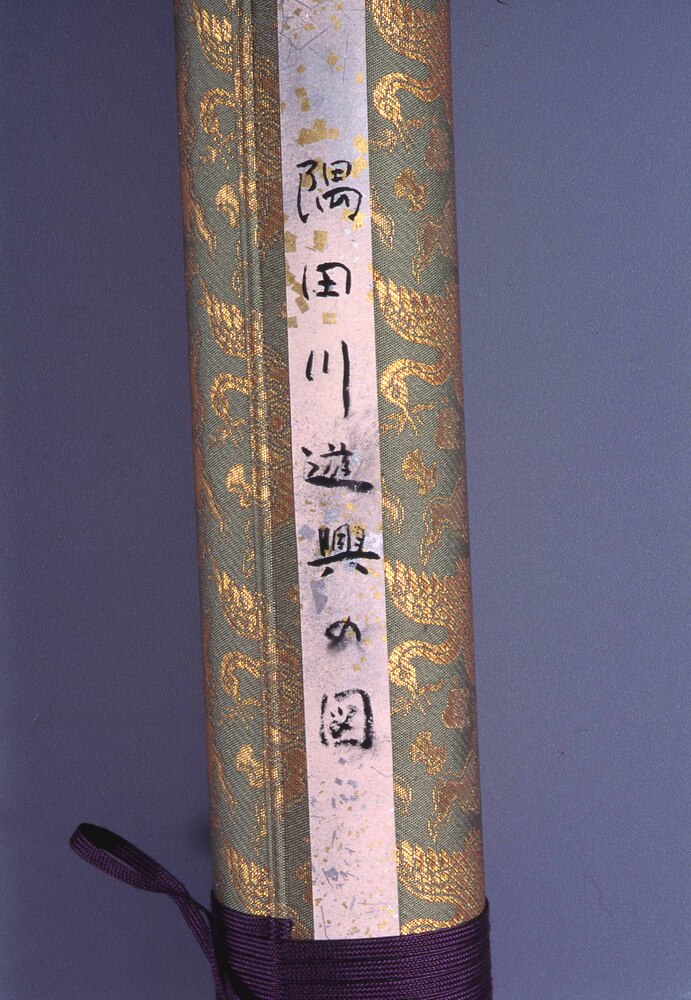 隅田川遊興の図